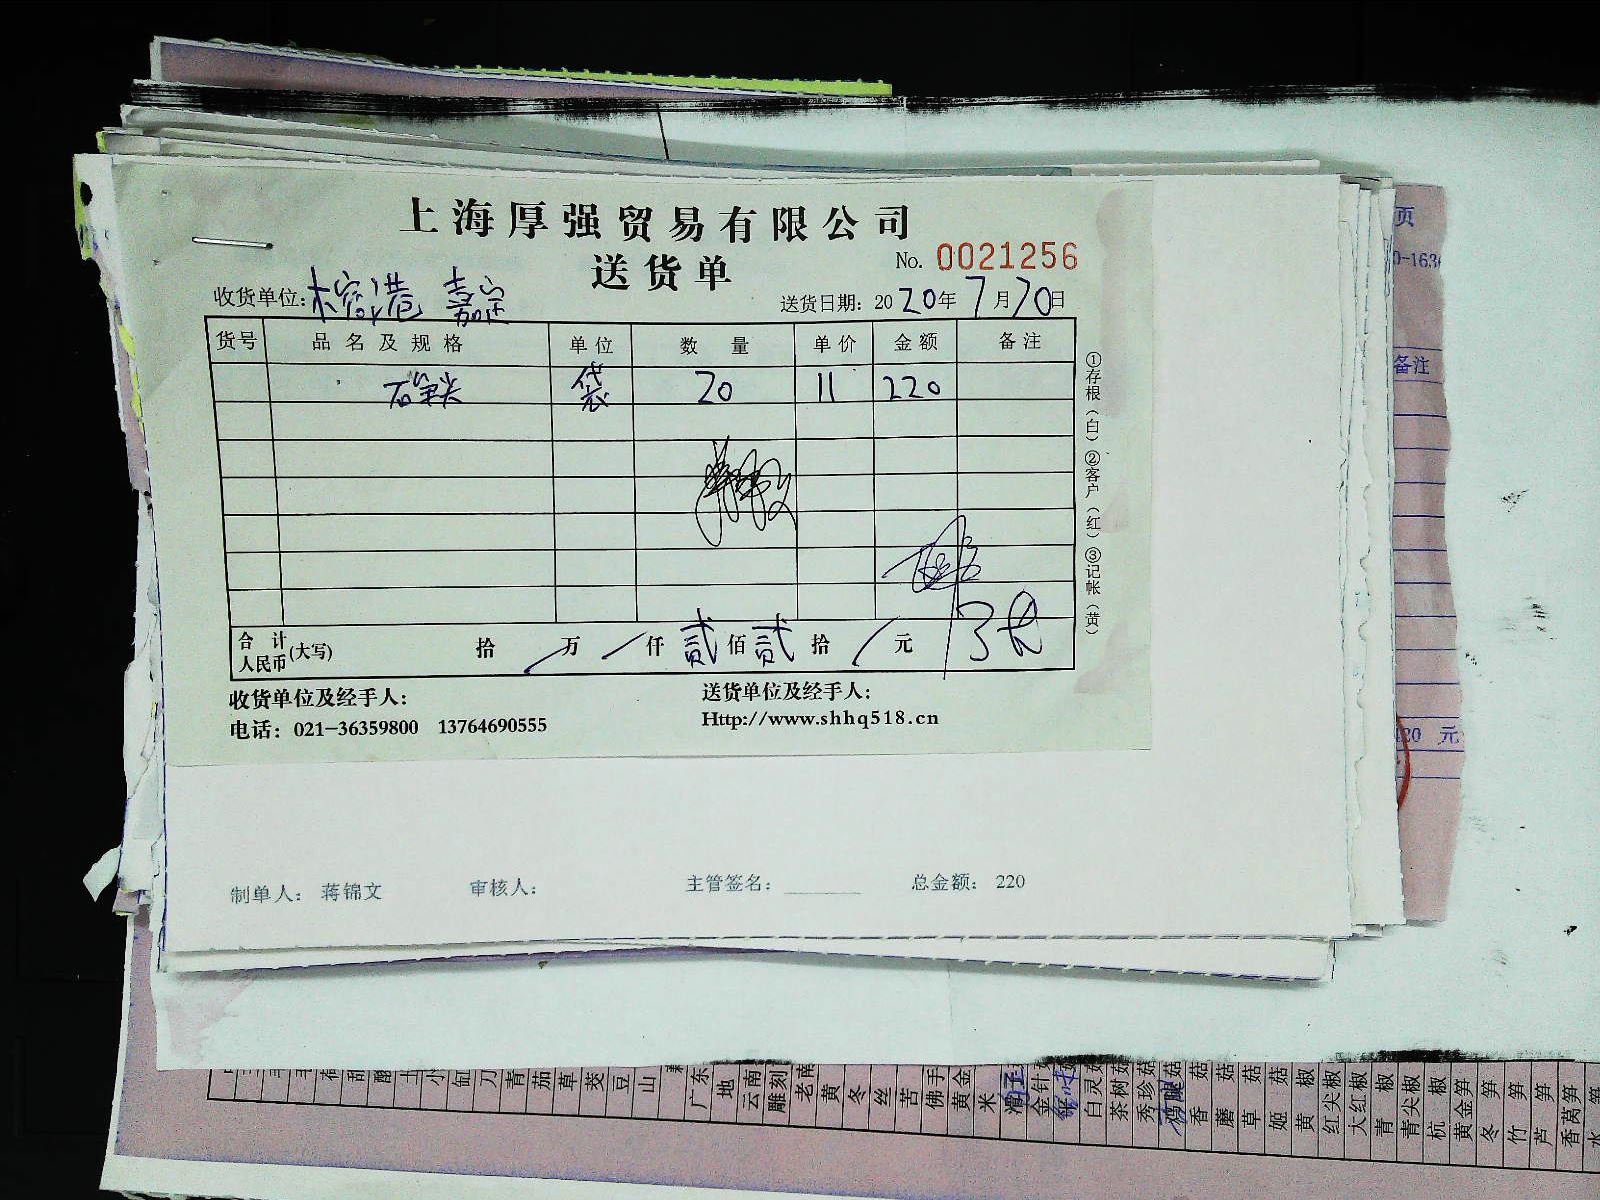 上海厚强贸易有限公司
送货单
No. 0021256
收货单位: 榕港 嘉定
送货日期: 2020年7月20日
货号 品名及规格 单位 数量 单价 金额 备注
袋 20 11 220
合计人民币(大写) 拾 万 仟 贰佰贰拾 元
①存根(白)②客户(红)③记帐(黄)
收货单位及经手人:
送货单位及经手人:
电话: 021-36359800 13764690555
Http://www.shhq518.cn
制单人: 蒋锦文 审核人: 主管签名: 总金额: 220
页
0-163
备注
420 元
广东
云南
雕刻
黄
冬
丝
苦
佛手
黄金
米
金针
白灵菇
茶树菇
秀珍菇
鸡腿菇
香菇
蘑菇
草菇
姬菇
黄椒
红尖椒
大红椒
青椒
青尖椒
杭椒
黄金笋
冬笋
竹笋
芦笋
香莴笋